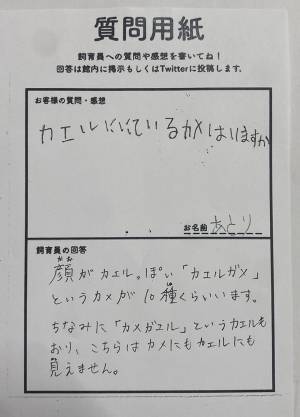 質問用紙
飼育員への質問や感想を書いてね！
回答は館内に掲示もしくはTwitterに投稿します。
お客様の質問・感想
カエルににているカメはいますか
お名前 あとり
飼育員の回答
顔がカエルっぽい「カエルガメ」
というカメが10種くらいいます。
ちなみに「カメガエル」というカエルも
おり、こちらはカメにもカエルにも
見えません。